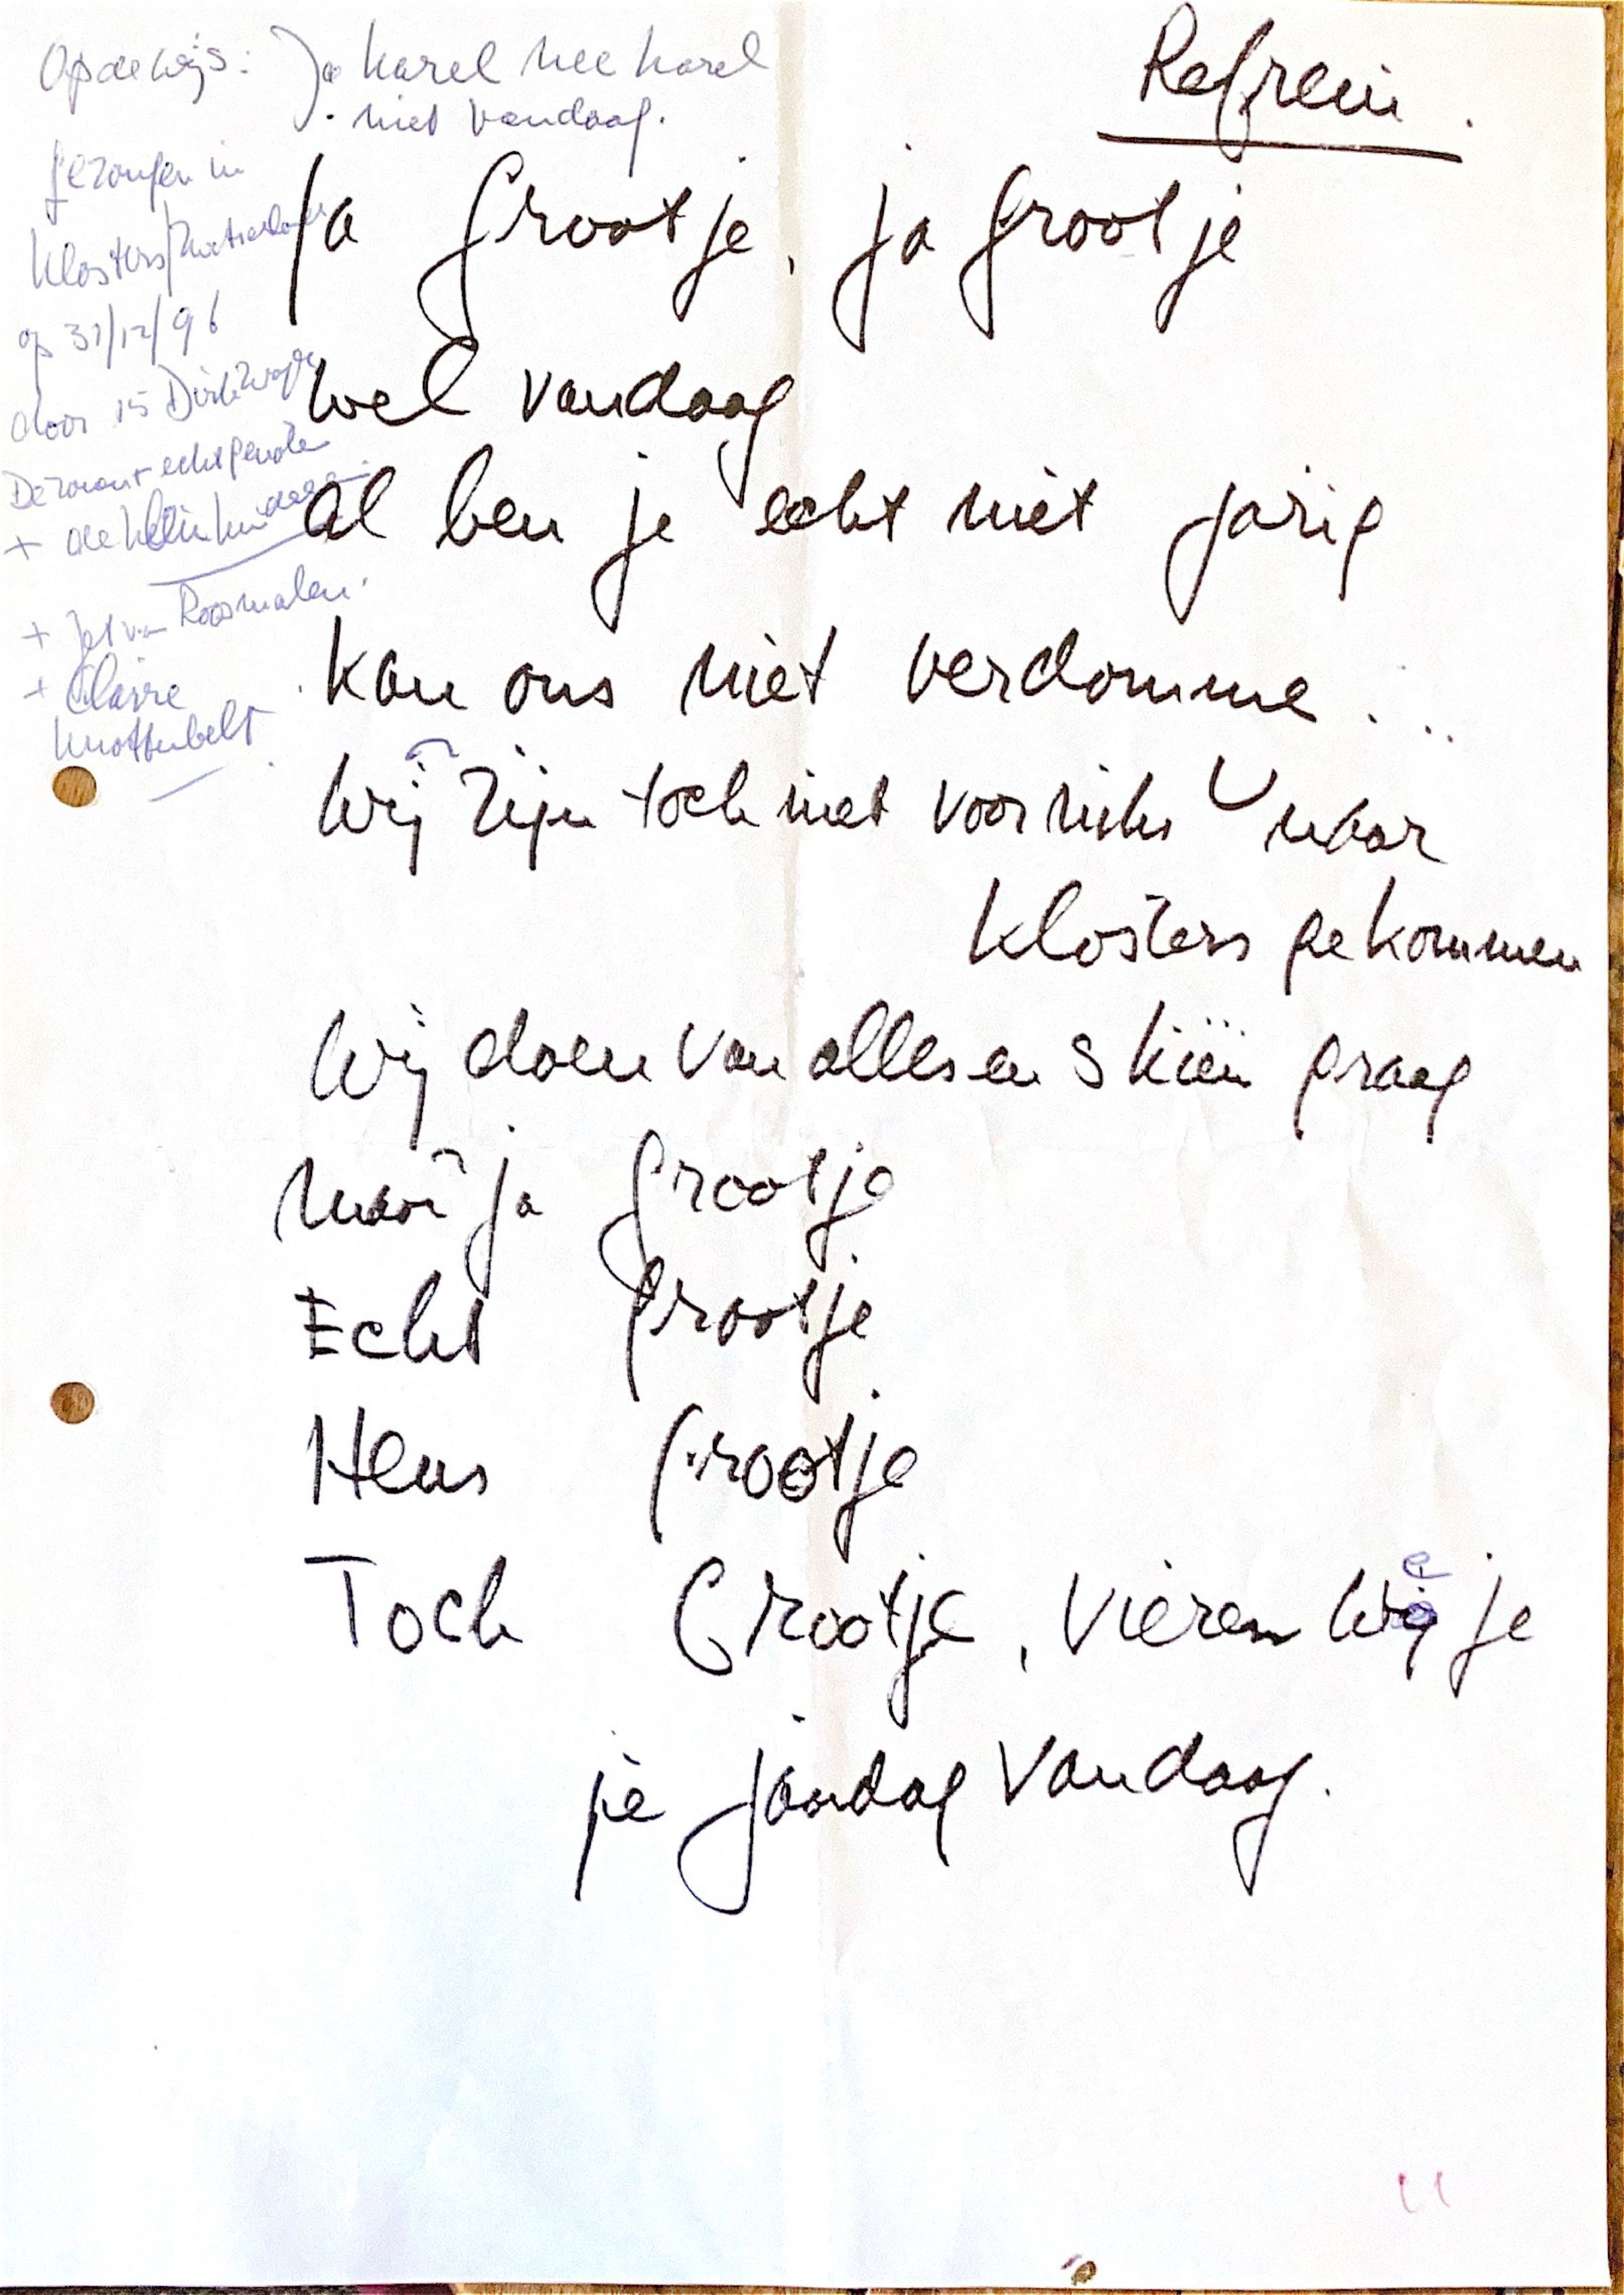 Op de wijs: Ja Karel nee Karel
niet vandaag.
Refrein.
gezongen in
Klosters/
op 31/12/96
door 15
echtgenote
+ de kleinkinderen
+ Jet van Roosmalen.
+ Claire
Knottenbelt
Ja Grootje, ja Grootje
wel vandaag
al ben je echt niet jarig
kan ons niet verdomme...
Wij zijn toch niet voor niks naar
Klosters gekommen
Wij doen van alles en skiën graag
maar ja Grootje
Echt Grootje
Heus Grootje
Toch Grootje, vieren we je
je jaardag vandaag.
11